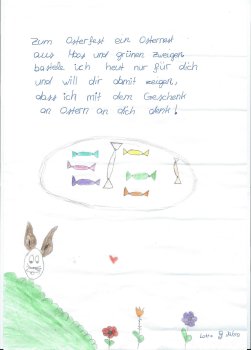 Zum Osterfest ein Osternest
aus Moos und grünen Zweigen
bastele ich heut nur für dich
und will dir damit zeigen,
dass ich mit dem Geschenk
an Ostern an dich denk!
9 Jahre